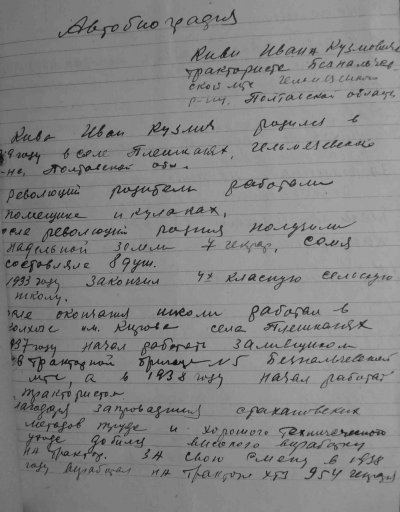 Автобиография
Киви Ивана Кузмовича
тракториста Безпальчев
ской мтс Гельмязского
р-на, Полтавской области
Кива Иван Кузмич родился в
году в селе Плешканях, Гельмязевского
Полтавской обл.
революций родители работали
помещике и кулаках,
после революций родия получили
надельной земли 7 гектар, семя
составляла 8 душ.
1933 году закончил 4х класную сельскую
школу.
после окончания школи работал в
колхозе им. Кирова села Плешканях
1937 году начал работать заливщиком
в тракторной бригаде №5 Безпальчевской
мтс, а в 1938 году начал работать
трактористом
запровадження стахановских
методов труда и хорошого технического
ухода добился високого виработку
на трактор. за свою смену в 1938
году виработал на тракторе ХТЗ 954 гектара